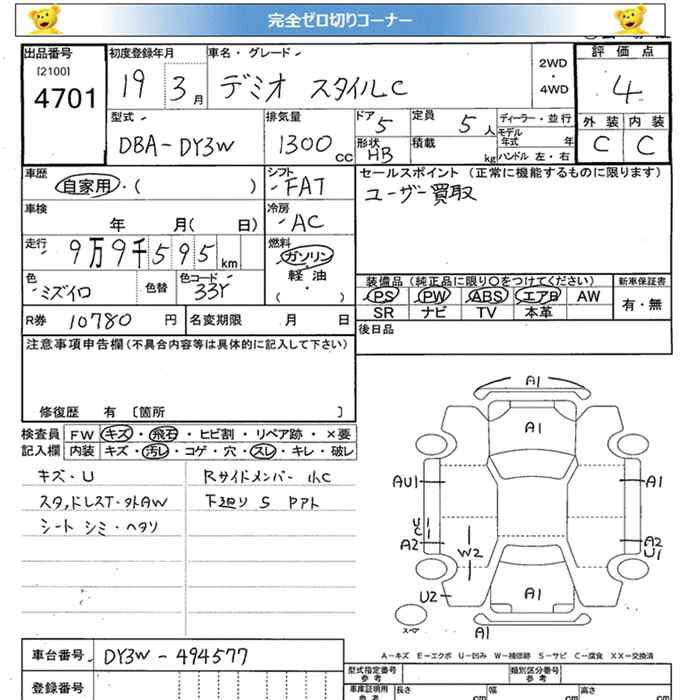 完全ゼロ切りコーナー
出品番号
[2100]
4701
初度登録年月
19 3月
車名・グレード
デミオ スタイルC
2WD
・
4WD
評価点
4
外装 内装
C C
型式
DBA-DY3W
排気量
1300cc
ドア
5
形状
HB
定員
5人
積載
kg
ディーラー・並行
モデル年式 年
ハンドル 左・右
車歴
自家用・( )
シフト
FAT
セールスポイント (正常に機能するものに限ります)
ユーザー買取
車検
年 月( 日)
冷房
AC
走行
9万9千595km
燃料
ガソリン
軽油
( ・ )
色
ミズイロ
色替
色コード
33Y
装備品 (純正品に限り○をつけてください)
PS PW ABS エアB AW
SR ナビ TV 本革
新車保証書
有・無
R券 10780円
名変期限 月 日
後日品
注意事項申告欄 (不具合内容等は具体的に記入して下さい)
修復歴 有 〔箇所 〕
検査員記入欄
FW キズ・飛石・ヒビ割・リペア跡・×要
内装 キズ・汚レ・コゲ・穴・スレ・キレ・破レ
キズ・U
スタッドレスT・外AW
シート シミ・ヘタリ
Rサイドメンバー 小C
下廻り S Pアト
A1
A1
AU1
A1
U1
C1
A2
W2
A2
U1
U2
A1
スペア
A1
A-キズ E-エクボ U-凹み W-補修跡 S-サビ C-腐食 XX-交換済
車台番号
DY3W-494577
登録番号
型式指定番号
参考
類別区分番号
参考
車庫証明用
参考
長さ cm
幅 cm
高さ cm